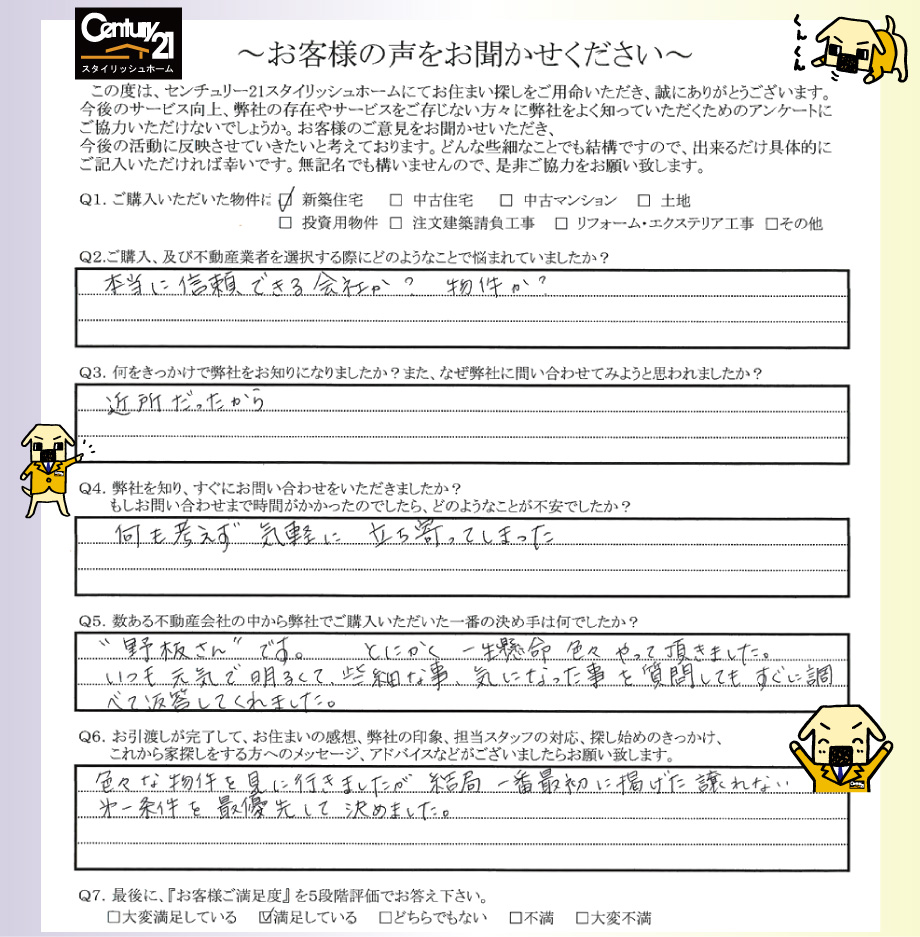 Century 21
スタイリッシュホーム
～お客様の声をお聞かせください～
くんくん
この度は、センチュリー21スタイリッシュホームにてお住まい探しをご用命いただき、誠にありがとうございます。
今後のサービス向上、弊社の存在やサービスをご存じない方々に弊社をよく知っていただくためのアンケートに
ご協力いただけないでしょうか。お客様のご意見をお聞かせいただき、
今後の活動に反映させていきたいと考えております。どんな些細なことでも結構ですので、出来るだけ具体的に
ご記入いただければ幸いです。無記名でも構いませんので、是非ご協力をお願い致します。
Q1. ご購入いただいた物件は ☑ 新築住宅 □ 中古住宅 □ 中古マンション □ 土地
□ 投資用物件 □ 注文建築請負工事 □ リフォーム・エクステリア工事 □その他
Q2.ご購入、及び不動産業者を選択する際にどのようなことで悩まれていましたか？
本当に信頼できる会社か？ 物件か？
Q3. 何をきっかけで弊社をお知りになりましたか？また、なぜ弊社に問い合わせてみようと思われましたか？
近所だったから
Q4. 弊社を知り、すぐにお問い合わせをいただきましたか？
もしお問い合わせまで時間がかかったのでしたら、どのようなことが不安でしたか？
何も考えず 気軽に 立ち寄ってしまった
Q5. 数ある不動産会社の中から弊社でご購入いただいた一番の決め手は何でしたか？
“野板さん”です。 とにかく 一生懸命 色々 やって頂きました。
いつも元気で明るくて、些細な事、気になった事を質問してもすぐに調
べて返答してくれました。
Q6. お引渡しが完了して、お住まいの感想、弊社の印象、担当スタッフの対応、探し始めのきっかけ、
これから家探しをする方へのメッセージ、アドバイスなどがございましたらお願い致します。
色々な物件を見に行きましたが 結局 一番最初に掲げた譲れない
第一条件を最優先して決めました。
Q7. 最後に、『お客様ご満足度』を5段階評価でお答え下さい。
□大変満足している ☑満足している □どちらでもない □不満 □大変不満